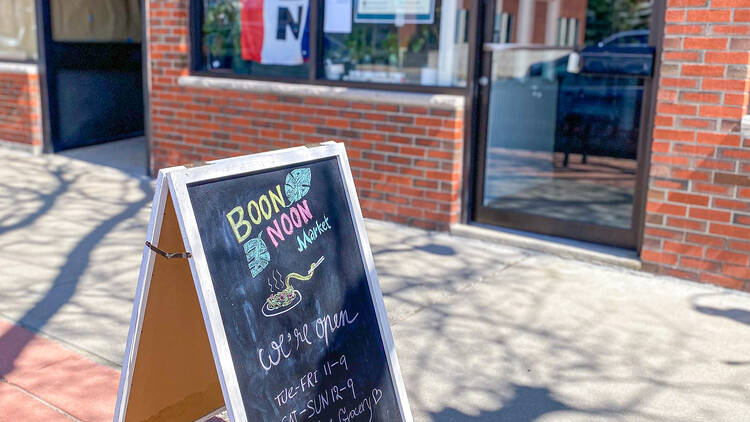 N
BOON
NOON
Market
we're open
TUE-FRI 11-9
SAT-SUN 12-9
Grocery